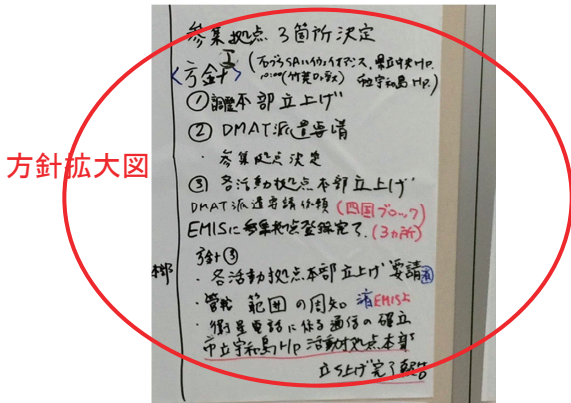 方針拡大図
参集拠点 3箇所決定
〈方針〉
(石づちSAハイウェイオアシス、県立中央HP.
市立宇和島HP.)
① 調整本部立上げ
② DMAT派遣要請
・参集拠点決定
③ 各活動拠点本部立上げ
DMAT派遣要請依頼 (四国ブロック)
EMISに参集拠点登録完了. (3ヵ所)
方針③
・各活動拠点本部立上げ要請 済
・管轄 範囲の周知 済 EMIS上
・衛星電話に係る通信の確立
市立宇和島HP 活動拠点本部
立ち上げ完了報告
部